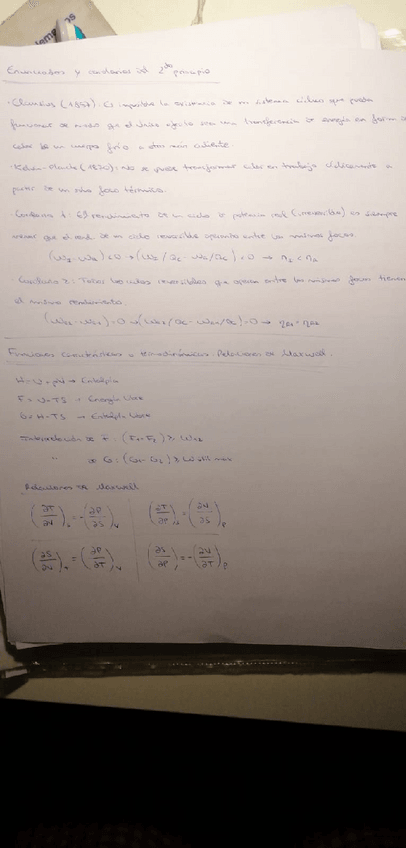 Enunciados y corolarios del 2do principio
· Clausius (1857): Es imposible la existencia de un sistema cíclico que pueda
funcionar de modo que el único efecto sea una transferencia de energía en forma de
calor de un cuerpo frío a otro más caliente.
· Kelvin-Planck (1870): No se puede transformar calor en trabajo cíclicamente a
partir de un solo foco térmico.
· Corolario 1: El rendimiento de un ciclo de potencia real (irreversible) es siempre
menor que el real de un ciclo reversible operando entre los mismos focos.
Corolario 2: Todos los ciclos reversibles que operan entre los mismos focos tienen
el mismo rendimiento.
Funciones Características o termodinámicas. Relaciones de Maxwell.
H=U+pV → Entalpía
F=U-TS → Energía libre
G=H-TS → Entalpía libre
Interpretación de F: (F₁-F₂) ≥
" de G: (G₁-G₂) ≥ W útil max
Relaciones de Maxwell
(∂T/∂V)ₛ=-(∂P/∂S)ᵥ (∂T/∂P)ₛ=(∂V/∂S)ₚ
(∂S/∂V)ₜ=(∂P/∂T)ᵥ (∂S/∂P)ₜ=-(∂V/∂T)ₚ